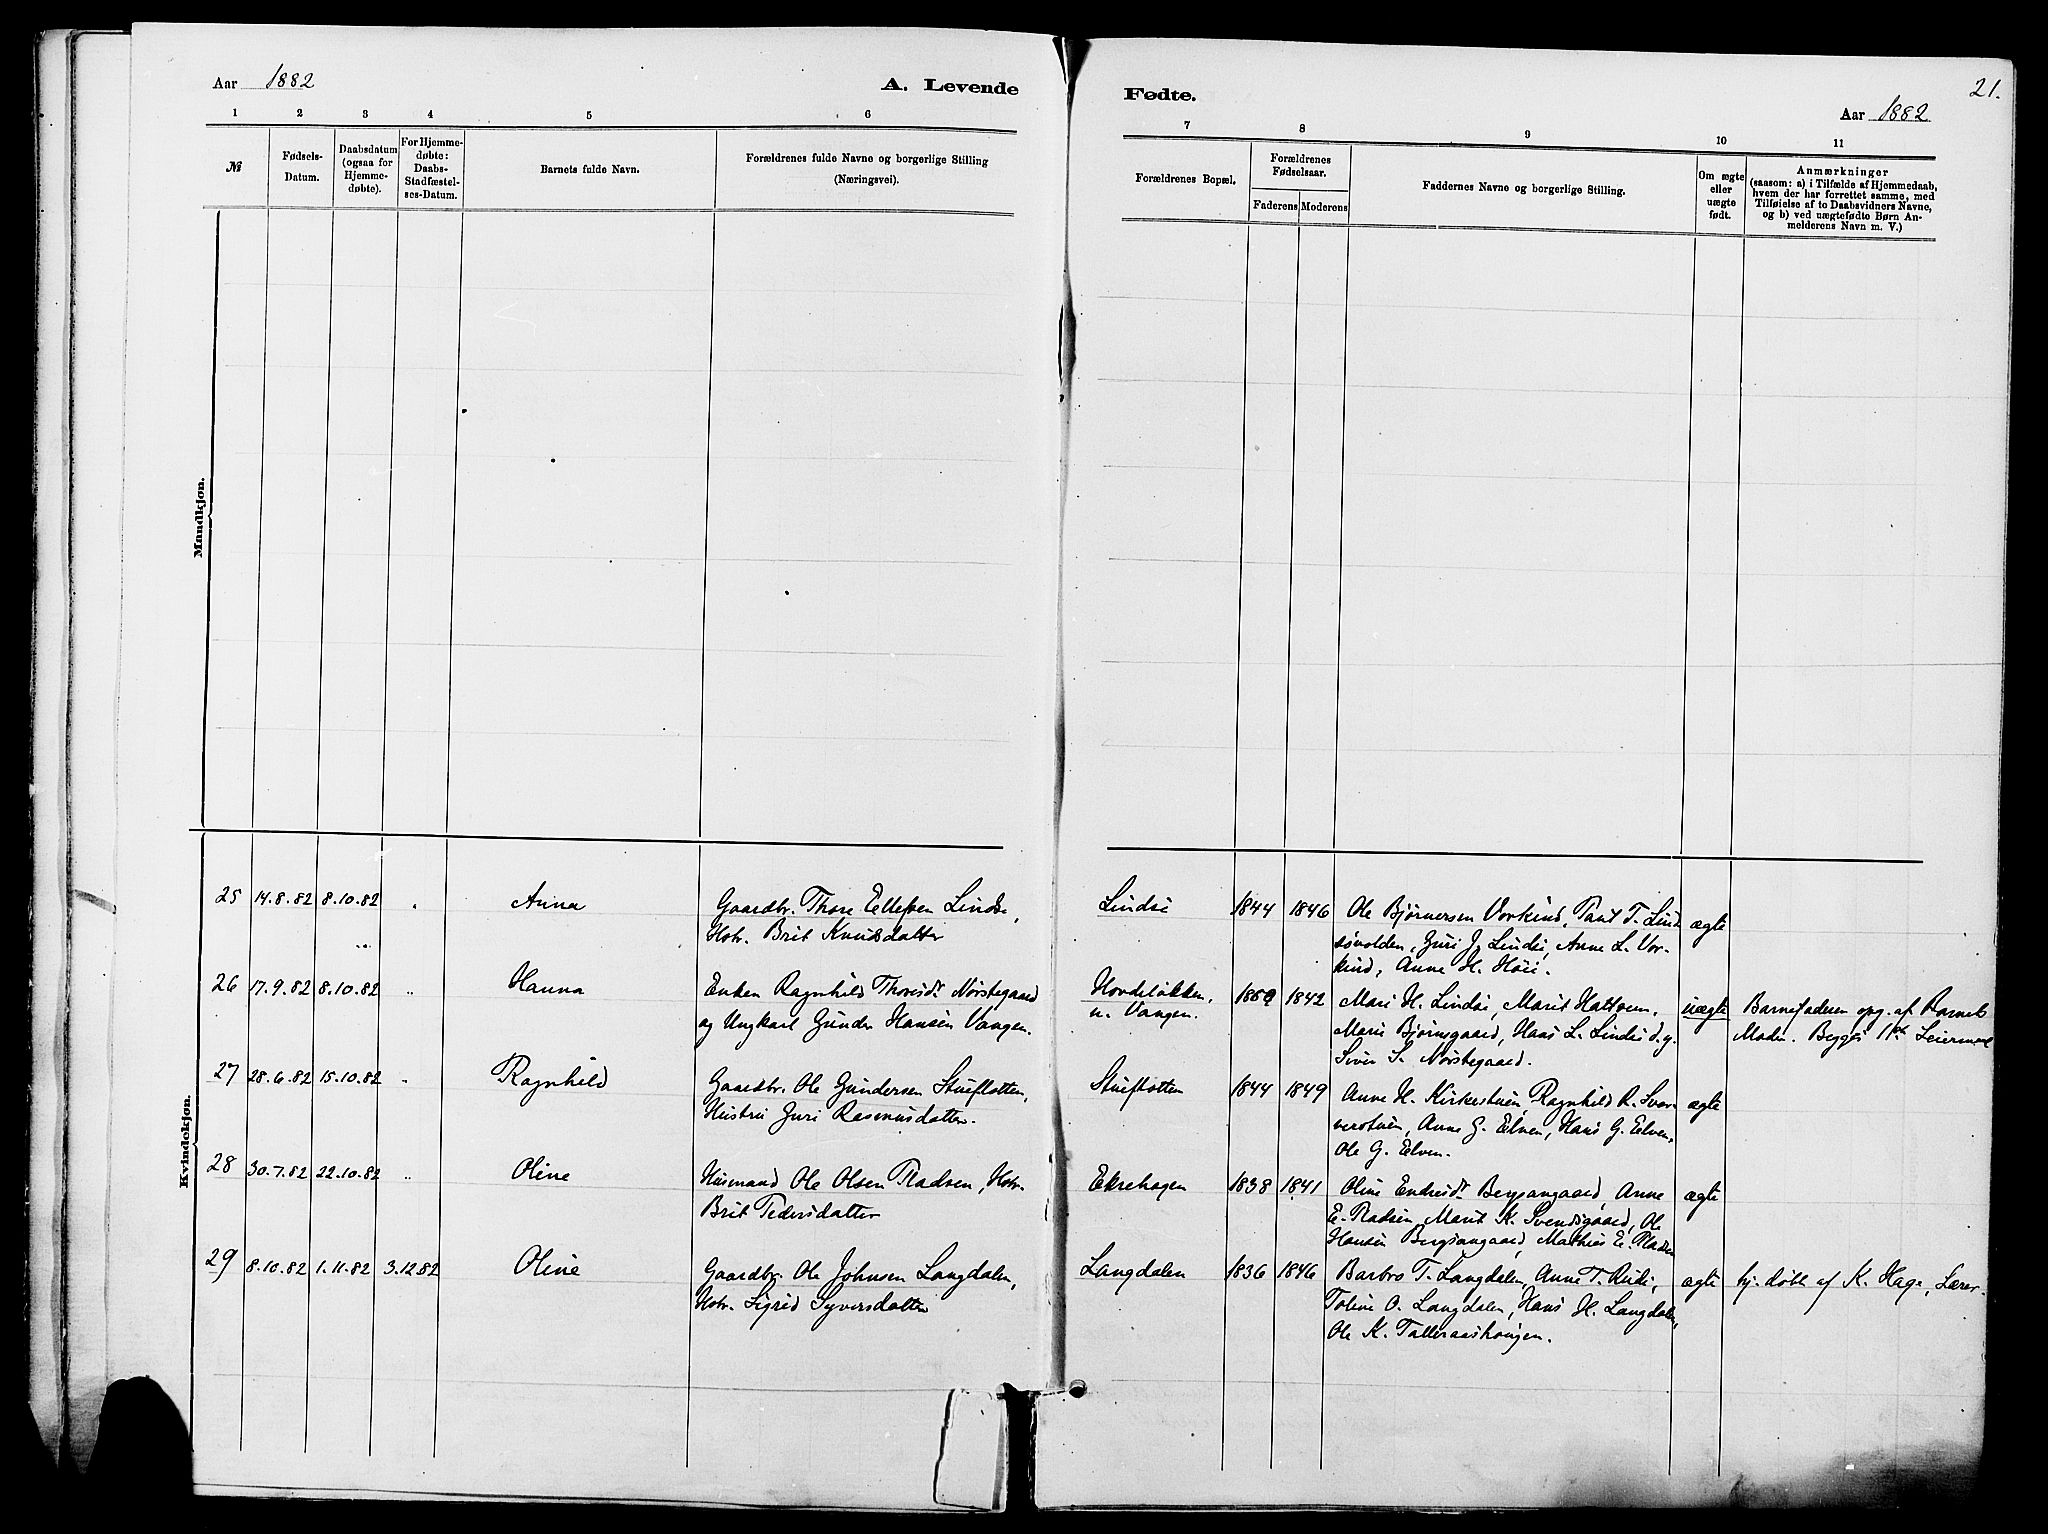 Aar 1882
A. Levende
Fødte.
21.
Aar 1882
1 2 3 4 5 6 7 8 9 10 11
№
Fødsels-
Datum.
Daabsdatum
(ogsaa for
Hjemme-
døbte).
For Hjemme-
døbte:
Daabs-
Stadfæstel-
ses-Datum.
Barnets fulde Navn.
Forældrenes fulde Navne og borgerlige Stilling
(Næringsvei).
Forældrenes Bopæl.
Forældrenes
Fødselsaar.
Faderens Moderens
Faddernes Navne og borgerlige Stilling.
Om ægte
eller
uægte
født.
Anmærkninger
(saasom: a) i Tilfælde af Hjemmedaab,
hvem der har forrettet samme, med
Tilføielse af to Daabsvidners Navne,
og b) ved uægtefødte Børn An-
melderens Navn m. V.)
Mandkjøn.
Kvindekjøn.
25 14.8.82 8.10.82 Anna
Gaardbr. Thore Ellefsen Lindsø,
Hstr. Brit Knudsdatter
Lindsø 1844 1846
Ole Bjørnersen Vorkind, T. Lind
søvolden, Guri J. Lindsø, Anne L. Vor-
kind, Anne H. Høie.
ægte
26 17.9.82 8.10.82 " Hanna
Enken Ragnhild Thoresdr. Nørstegaard
og Ungkarl Gunder Hansen Vangen.
Hovdeløkken,
n. Vangen.
1842
Mari H. Lindsø, Marit Hattrem,
Marie Bjørnsgaard, Hans L. Lindsø d.y.
Siver S. Nørstegaard.
uægte
Barnefaderen opg. af Barnets
Moder. Begges 1ste Leiermaal
27 28.6.82 15.10.82 " Ragnhild
Gaardbr. Ole Gundersen Stuefløtten,
Hustru Guri Rasmusdatter.
Stuefløtten 1844 1849
Anne H. Kirkestuen, Ragnhild R. Svar-
verstuen, Anne G. Elven, Hans G. Elven,
Ole G. Elven.
ægte
28 30.7.82 22.10.82 " Oline
Husmand Ole Olsen Pladsen, Hstr.
Brit Pedersdatter
Ekrehagen 1838 1841
Oline Endresdr. Bergsangaard, Anne
E. Pladsen, Marit K. Svendsgaard, Ole
Hansen Bergsangaard, Mathias E. Pladsen
ægte
29 8.10.82 1.11.82 3.12.82 Oline
Gaardbr. Ole Johnsen Langdalen,
Hstr. Sigrid Syversdatter
Langdalen 1836 1846
Barbro T. Langdalen, Anne T. Rudi,
Toline O. Langdalen, Hans H. Langdalen,
Ole K. Talleraashaugen.
ægte
hj. døbt af K. Hage, Lærer.